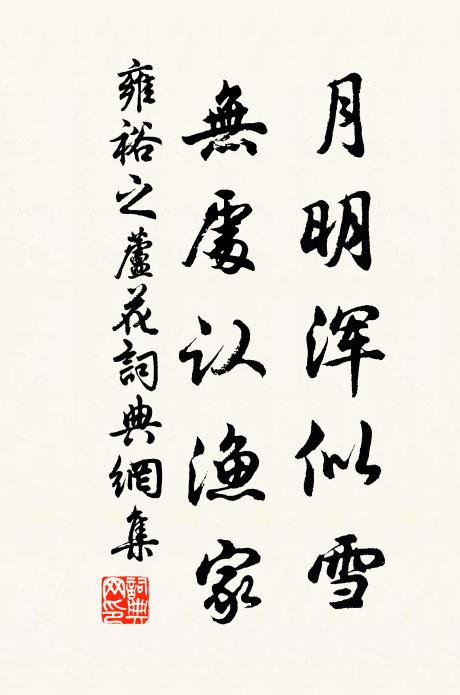 月明浑似雪
無處认渔家
雍裕之蘆花詞典網集
詞典网印